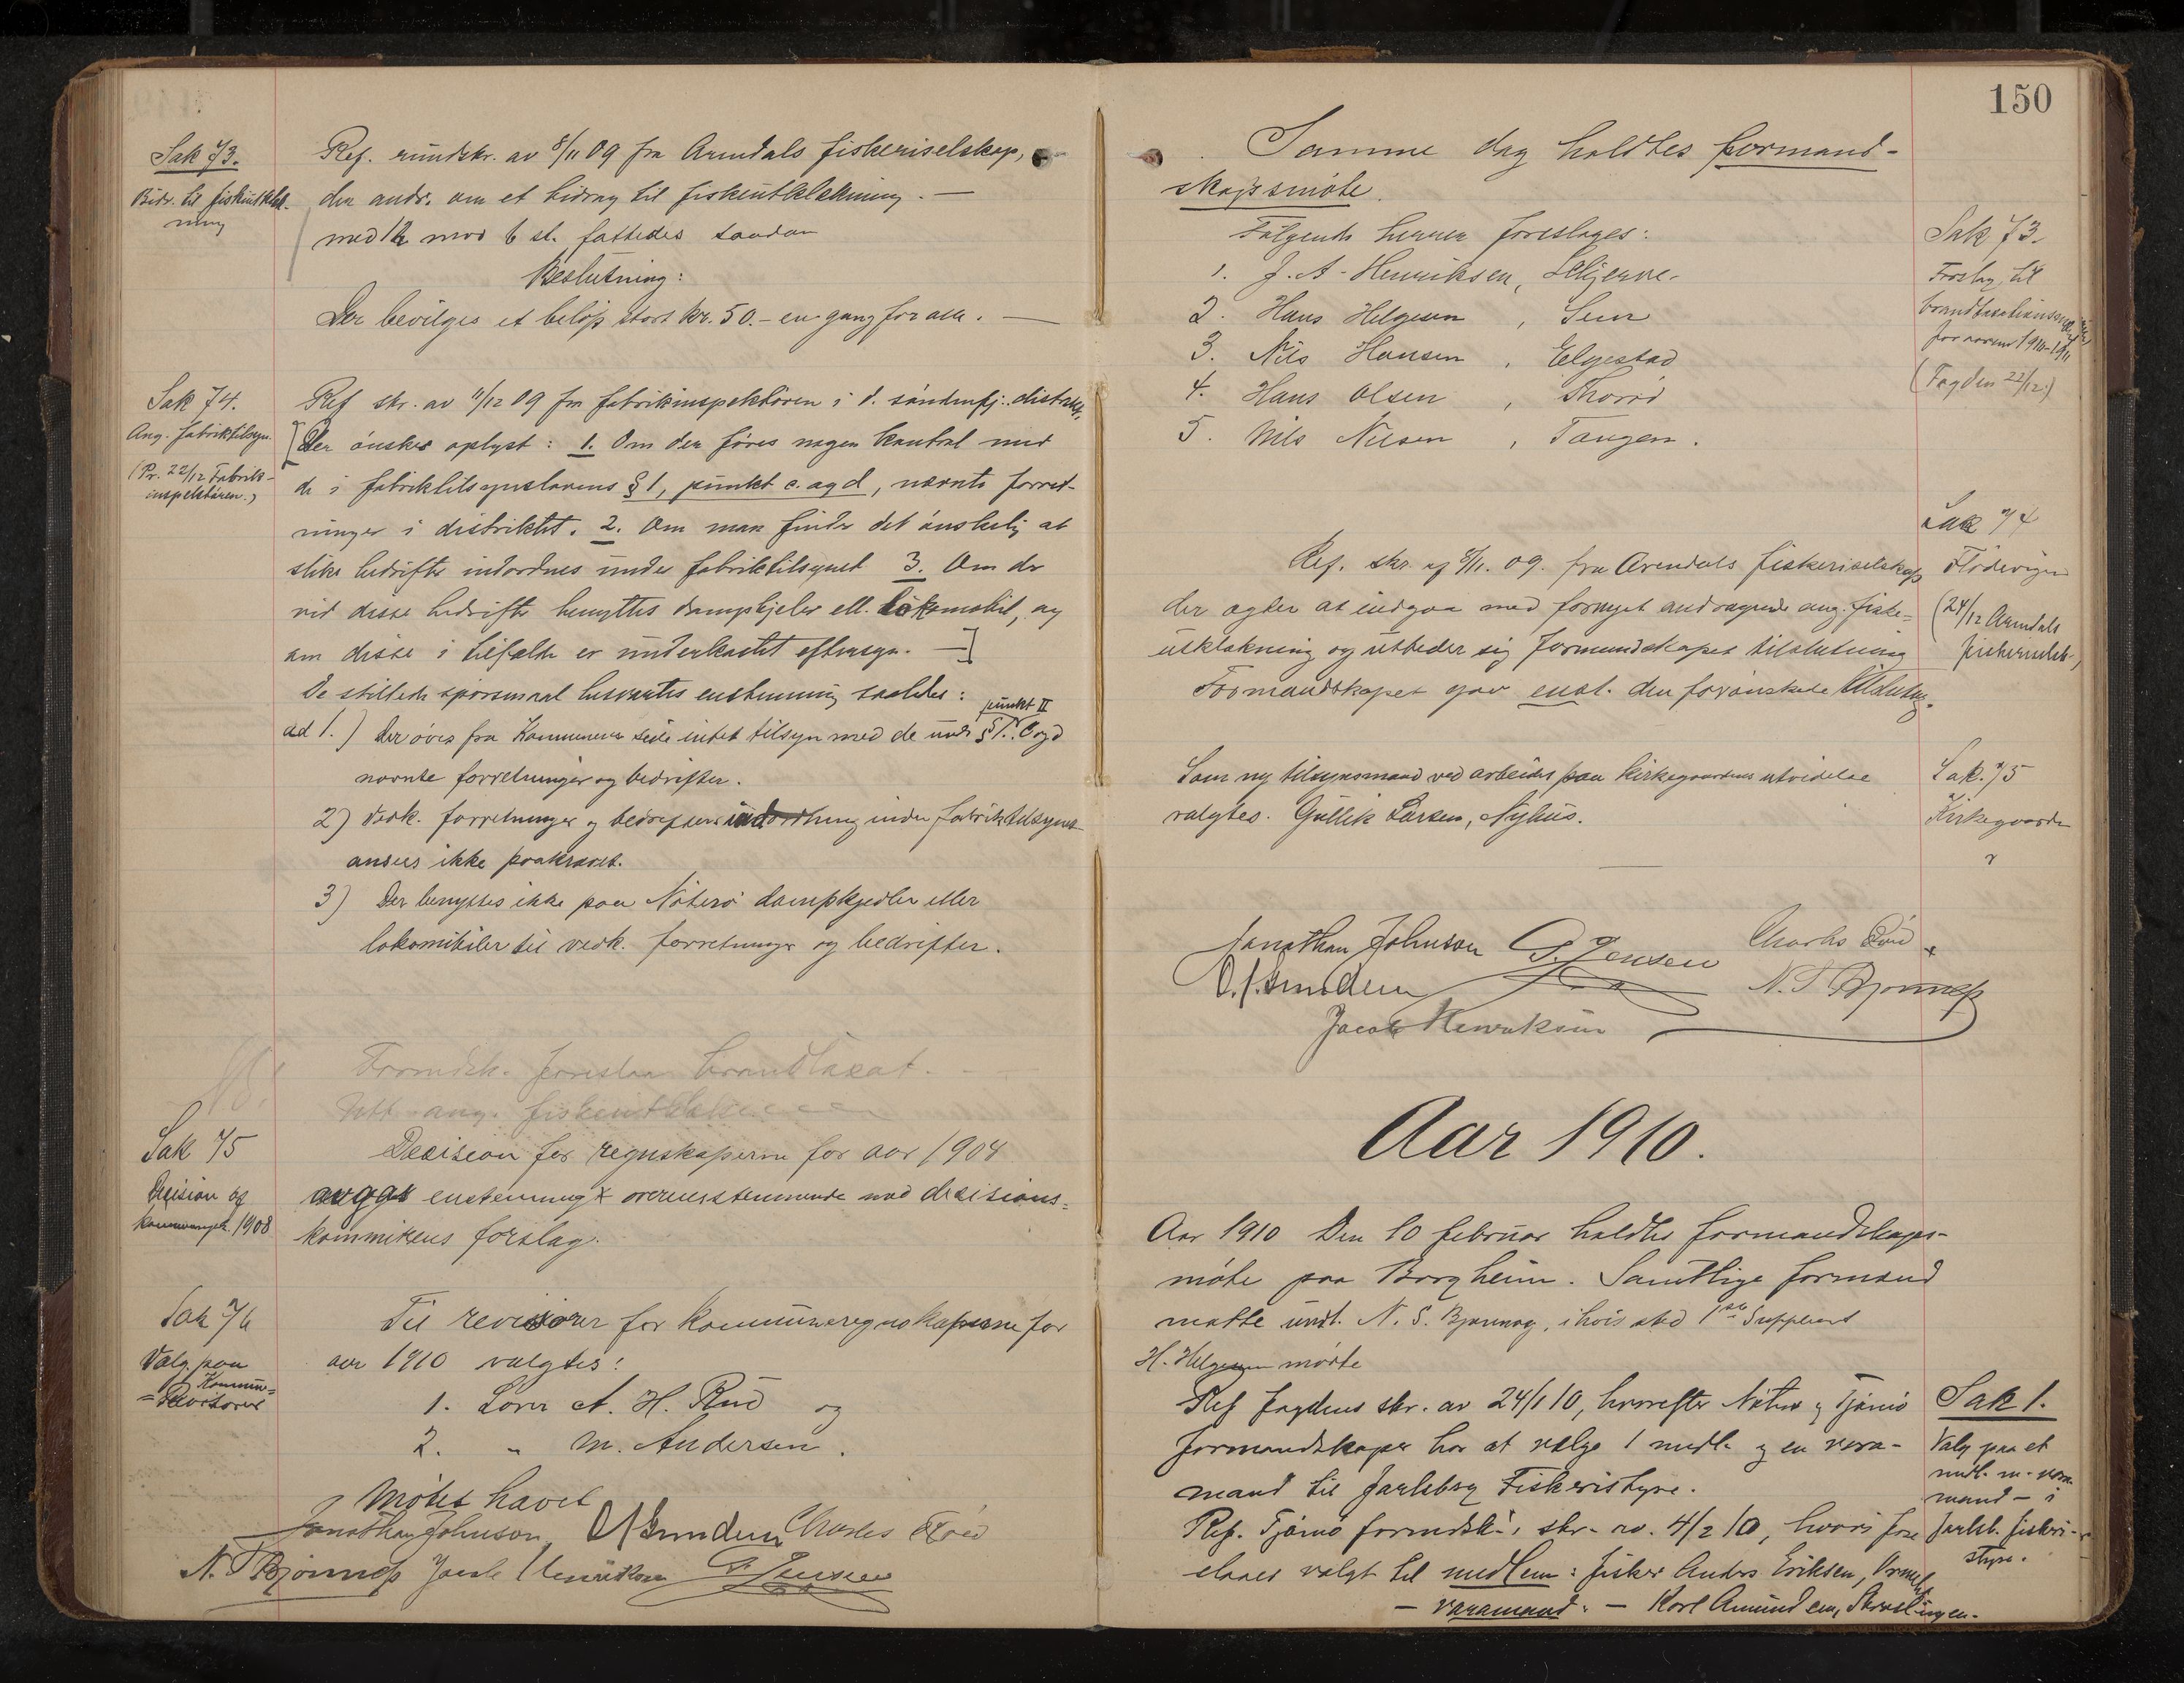 Sak 73.
Bidr. til fiskeutklæk-
ning
Ref. rundskr. av 8/11 09 fra Arendals fiskeriselskap,
der andr. om et bidrag til fiskeutklækning. —
med 12 mod 6 st. fattedes saadan
Beslutning:
Der bevilges et beløp stort kr. 50.- en gang for alle. —
Sak 74.
Ang. fabriktilsyn.
(Pr. 22/12 Fabrik-
inspektøren.)
Ref skr. av 11/12 09 fra fabrikinspektøren i d. søndenfj. distrikt,
[Der ønskes oplyst: 1. Om der føres nogen kontrol med
de i fabriktilsynslovens § 1, punkt c. og d, nævnte forret-
ninger i distriktet. 2. Om man finder det ønskelig at
slike bedrifter indordnes under fabriktilsynet 3. Om der
ved disse bedrifter benyttes dampkjeler ell. lokomobil, og
om disse i tilfælde er underkastet eftersyn. —]
De stillede spørsmaal besvartes enstemmig saaledes:
punkt II
ad 1.) Der øves fra Kommunens side intet tilsyn med de under § 1. C og d
nævnte forretninger og bedrifter.
2) Vedk. forretninger og bedrifters indordning under fabriktilsynet
ansees ikke paakrævet.
3) Der benyttes ikke paa Nøterø dampkjedler eller
lokomobiler til vedk. forretninger og bedrifter.
NB.
Formdsk. foreslaa brandtaxat. —
Utt. ang. fiskeutklæk
Sak 75
Decision og
1908
Decision for regnskaperne for aar 1908
avgat enstemmigt overensstemmende med decisions-
komiteens forslag.
Sak 76
Valg paa
Kommune-
=Revisorer
Til revisorer for kommuneregnskaperne for
aar 1910 valgtes:
1. Lærer A. H. Ruud og
2. " M. Andersen.
Møtet hævet
Jonathan Johnson, Charles Røed
N. S Bjønnes Jacob Henriksen G. Jensen
150
Samme dag holdtes formand-
skapsmøte.
Følgende herrer foreslages:
1. J. A. Henriksen, Skjerve-
2. Hans Helgesen, Sem
3. Nils Hansen, Elgestad
4. Hans Olsen,
5. Nils Nilsen, Tangen.
Sak 73.
Forslag til
for aarene 1910-1911
(Fogden 22/12.)
Sak 74
Flødevigen
(24/12 Arendals
fiskeriselsk.)
Ref. skr. af 8/11. 09. fra Arendals fiskeriselskap
der agter at indgaa med fornyet andragende ang. fiske-
utklækning og utbeder sig formandskapets tilslutning
Formandskapet gav enst. den forønskede tilslutng.
Sak. 75
Kirkegaarden
Som ny tilsynsmand ved arbeidet paa kirkegaardens utvidelse
valgtes. Gullik Larsen, Nyhus.
Jonathan Johnson G. Jensen Charles Røed
N. S Bjønnes
Jacob Henriksen
Aar 1910.
Aar 1910 Den 10 februar holdtes formandskaps-
møte paa Borgheim. Samtlige formænd
møtte undt. N. S. Bjønnes, i hvis sted 1ste Suppleant
H. Helgesen mødte
Sak 1.
Valg paa et
medl. m. vara-
mand - i
Jarlsb. fiskeri-
styre.
Ref fogdens skr. av 24/1 10, hvorefter Nøterø og Tjømø
formandskaper har at vælge 1 medl. og en vara-
mand til Jarlsberg Fiskeristyre.
Ref. Tjømø formdsk's skr. av. 4/2 10, hvori fore
slaaes valgt til medlem: fisker Anders Eriksen,
— varamand: — Karl Amundsen,